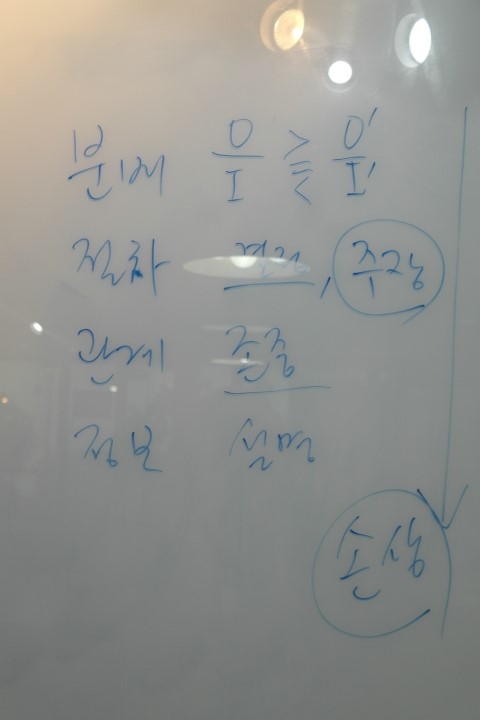 분배 O/I ⋛ O'/I'
절차 , 주장
관계 존중
정보 설명
손상